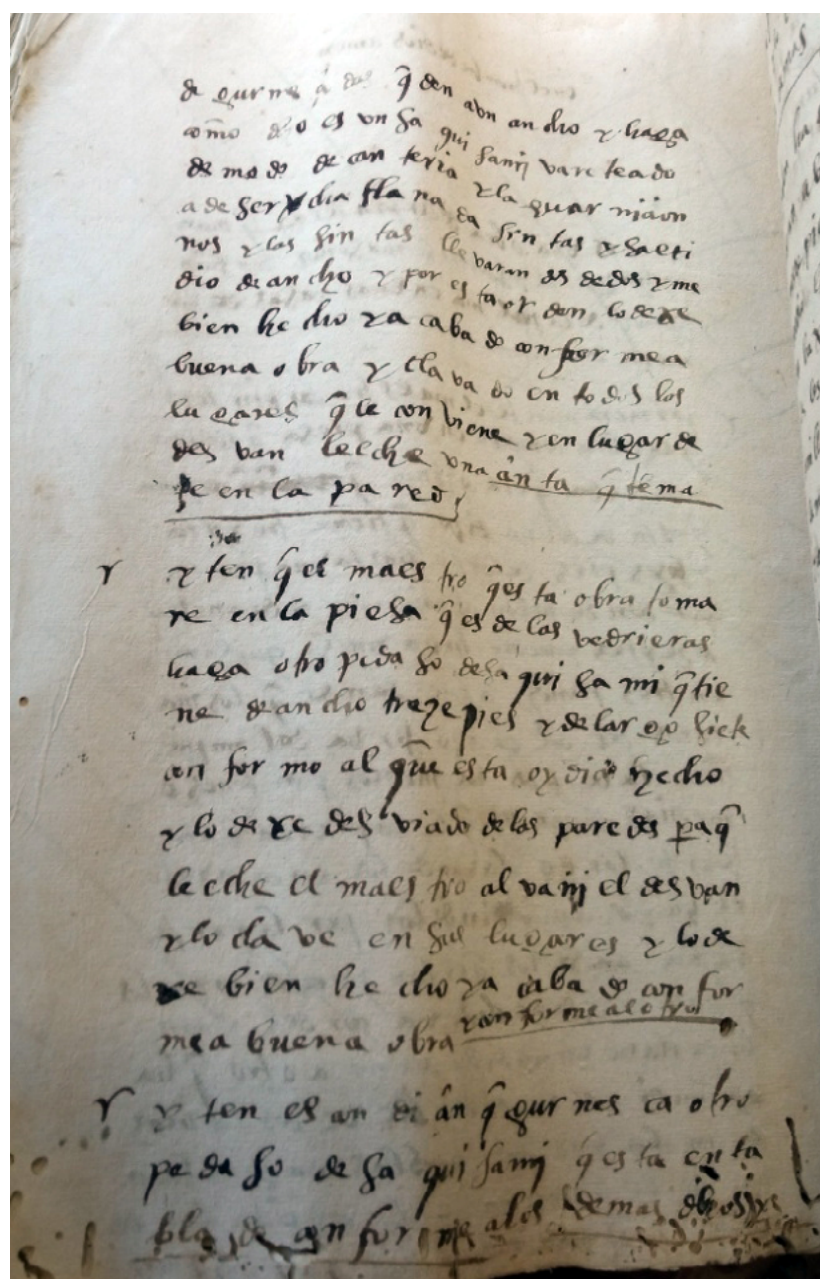 de gurnes a dos q̃ den a un ancho y haga
como dio es un sa qui sami vareteado
de modo de can teria y la guar nision
a de ser dicha lla na da sin tas y saeti
nos y las sin tas lle varan dos dedos y me
dio de an cho y por es ta or den lo dexe
bien he cho ya caba do con for me a
buena obra y cla va do en todos los
lugares q̃ le con viene y en lugar de
des van le eche una sin ta q̃ tema
te en la pared
y ten q̃ el maes tro q̃ es ta obra toma
re en la piesa q̃ es de las vedrieras
haga otro peda so de sa qui sa mi q̃ tie
ne de an cho treze pies y de lar go siete
con for mo al que esta oy dia hecho
y lo de xe des viado de las paredes pa q̃
le eche el maes tro al vañi el desvan
y lo cla ve en sus lugares y lo de
xe bien he cho ya caba do con for
me a buena obra y con forme al otro
Y y ten es con di con q̃ gur nes ca otro
pe da so de sa qui sami q̃ es ta en ta
bla do con forme a los demas dichos